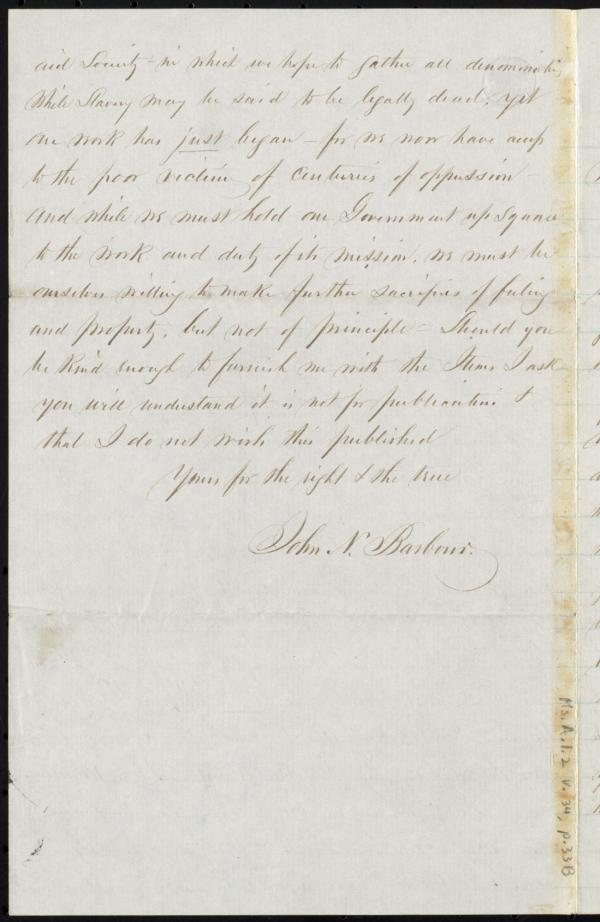 aid Society - in which we hope to gather all denominations
While Slavery may be said to be legally dead, yet
our work has just began - for we now have access
to the poor victim of centuries of oppression -
And while we must hold our Government up square
to the work and duty of its mission, we must be
ourselves willing to make further sacrifices of feeling
and property, but not of principle - Should you
be kind enough to furnish me with the Items I ask
you will understand it is not for publication &
that I do not wish this published
Yours for the right & the true
John N. Barbour.
Ms. A.1.2 v. 34, p. 33B